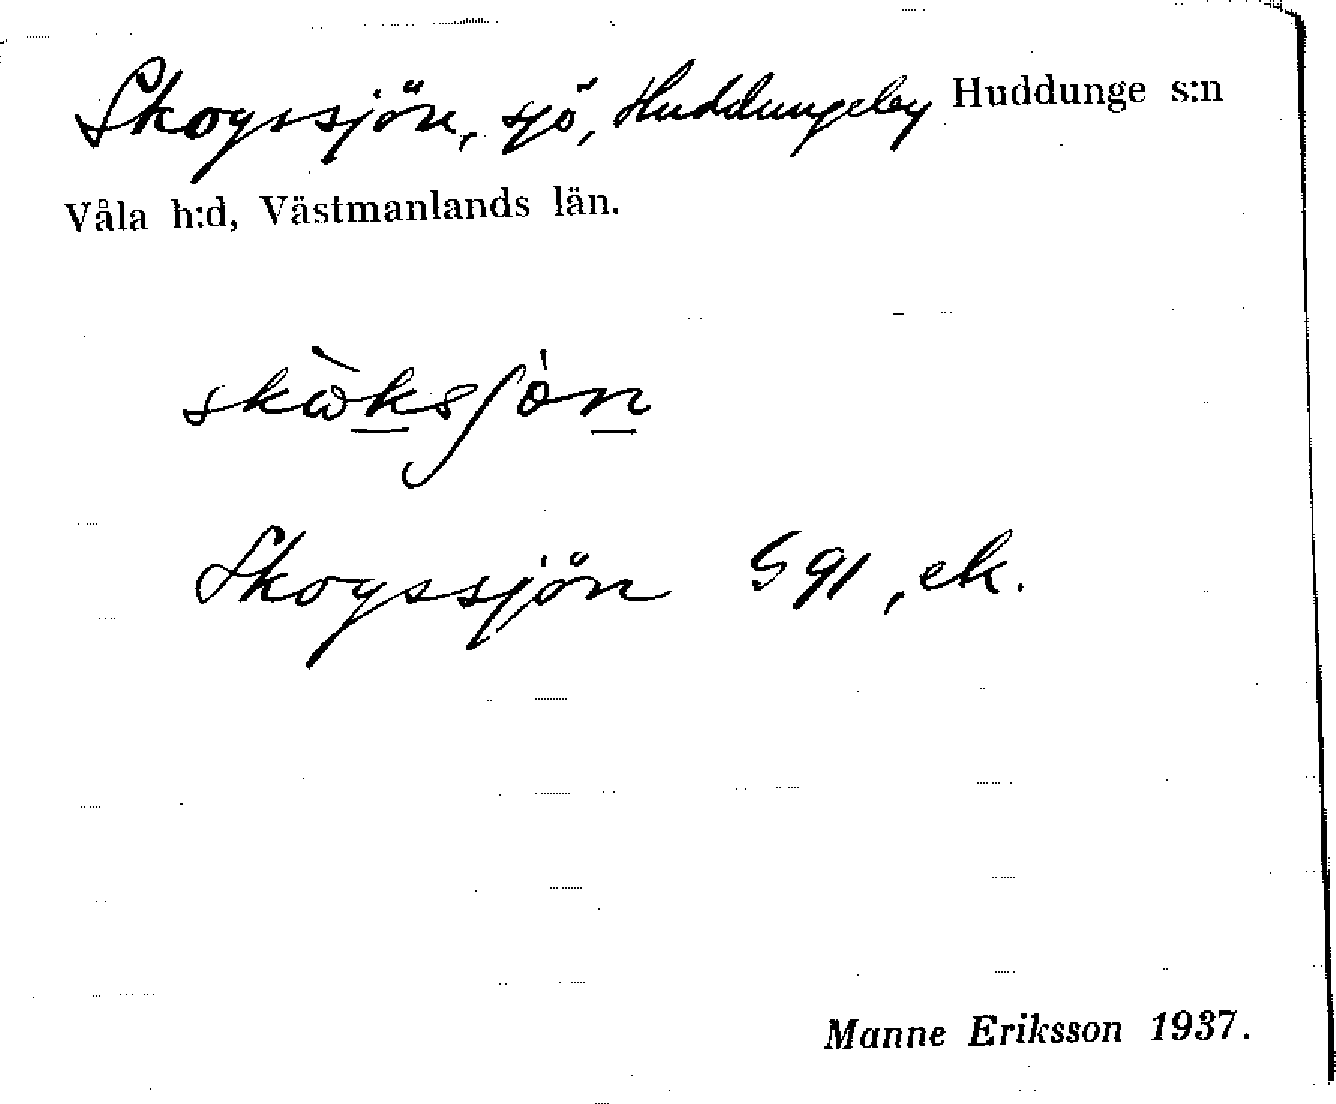 Skogssjön, sjö, Huddungeby Huddunge s:n
Våla h:d, Västmanlands län.
Skogssjön 591, ek.
Manne Eriksson 1937.